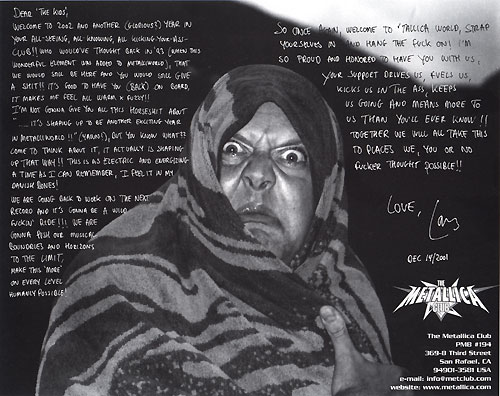 Dear 'The Kids',
WELCOME TO 2002 AND ANOTHER (GLORIOUS?) YEAR IN
YOUR ALL-SEEING, ALL KNOWING, ALL KICKING-YOUR-ASS-
CLUB!! WHO WOULD'VE THOUGHT BACK IN '93 (WHEN THIS
WONDERFUL ELEMENT WAS ADDED TO METALLIWORLD), THAT
WE WOULD STILL BE HERE AND YOU WOULD STILL GIVE
A SHIT!! IT'S GOOD TO HAVE YOU (BACK) ON BOARD,
IT MAKES ME FEEL ALL WARM & FUZZY!!
I'M NOT GONNA GIVE YOU ALL THIS HORSESHIT ABOUT
"...IT'S SHAPING UP TO BE ANOTHER EXCITING YEAR
IN METALLIWORLD!!" (YAWN!), BUT YOU KNOW WHAT??
COME TO THINK ABOUT IT, IT ACTUALLY IS SHAPING
UP THAT WAY!! THIS IS AS ELECTRIC AND ENERGIZING
A TIME AS I CAN REMEMBER, I FEEL IT IN MY
DANISH BONES!
WE ARE GOING BACK TO WORK ON THE NEXT
RECORD AND IT'S GONNA BE A WILD
FUCKIN' RIDE!!! WE ARE
GONNA PUSH OUR MUSICAL
BOUNDRIES AND HORIZONS
TO THE LIMIT,
MAKE THIS "MORE"
ON EVERY LEVEL
HUMANLY POSSIBLE!
SO ONCE AGAIN, WELCOME TO 'TALLICA WORLD, STRAP
YOURSELVES IN AND HANG THE FUCK ON!! I'M
SO PROUD AND HONORED TO HAVE YOU WITH US,
YOUR SUPPORT DRIVES US, FUELS US,
KICKS US IN THE ASS, KEEPS
US GOING AND MEANS MORE TO
US THAN YOU'LL EVER KNOW!!
TOGETHER WE WILL ALL TAKE THIS
TO PLACES WE, YOU OR NO
FUCKER THOUGHT POSSIBLE!!
LOVE, Lars
DEC 14/2001
THE
METALLICA
CLUB
The Metallica Club
PMB #194
369-B Third Street
San Rafael, CA
94901-3581 USA
e-mail: info@metclub.com
website: www.metallica.com